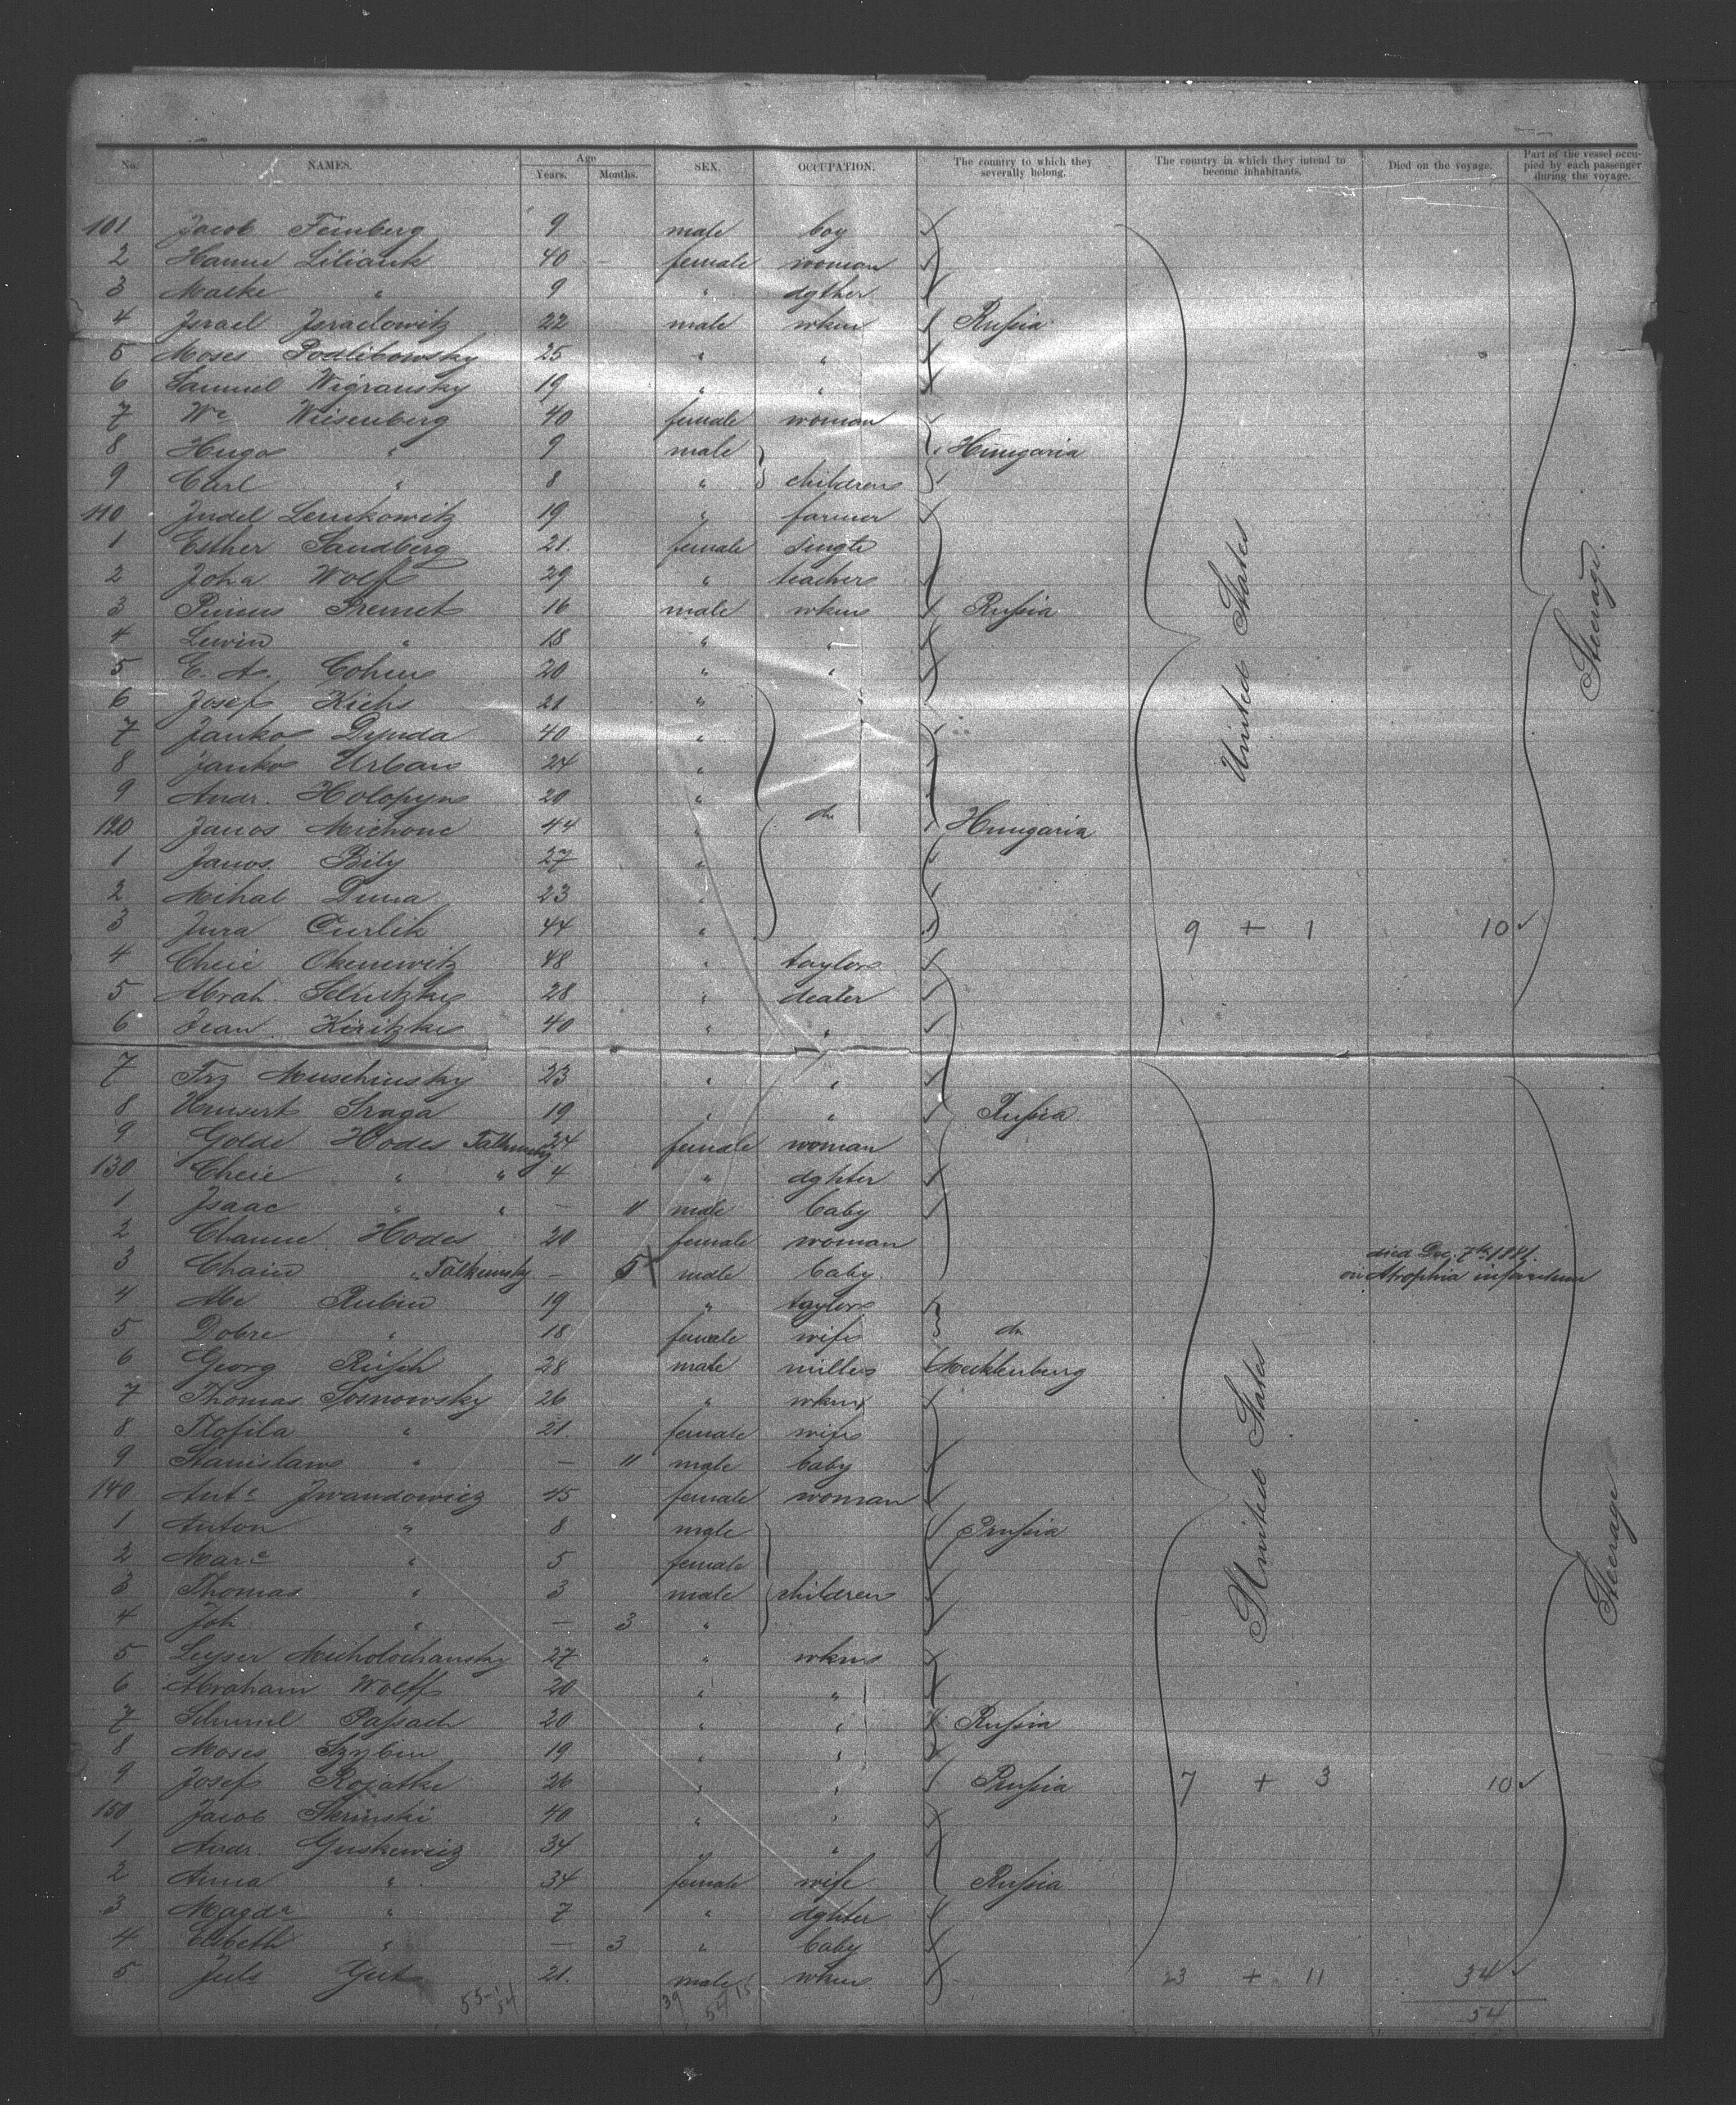 No. NAMES. Age Years. Months. SEX. OCCUPATION. The country to which they severally belong. The country in which they intend to become inhabitants. Died on the voyage. Part of the vessel occupied by each passenger during the voyage.
101 Jacob Feinberg 9 male boy
2 Hanne Liliank 40 – female woman
3 Malke " 9 " dgther
4 Israel Israelowitz 22 male wkm Rußia
5 Moses Podlibowsky 25 " "
6 Samuel Wigransky 19 " "
7 We Weisenberg 40 female woman
8 Hugo " 9 male Hungaria
9 Carl " 8 " children
110 Judel Lenkowitz 19 " farmer
1 Esther Sandberg 21. female single
2 Joha Wolf 29 " teacher
3 Pinius Premet 16 male wkm Rußia
4 Lewin " 18 " "
5 E. A. Cohen 20 " "
6 Josef Kichs 21 "
7 Janko Dynda 40 "
8 Janko Urban 24 "
9 Andr. Holopyn 20 " do
120 Janos Michonc 44 " Hungaria
1 Janos Bily 27 "
2 Mihal Duna 23 "
3 Jura Curlik 44 " 9 + 1 10
4 Cheie Okenewitz 48 " taylor
5 Abrah. Selutzky 28 " dealer
6 Jean Kiritzke 40 " "
United States
Steerage.
7 Frz Muschinsky 23 " "
8 Hunsert Sraga 19 " " Rußia
9 Golde Hodes Falkensky 24 female woman
130 Cheie " " 4 " dghter
1 Isaac " " – 11 male baby
2 Channe Hodes 20 female woman
3 Chain " Falkensky – 5 male baby died Dec. 7th 1881. on Atrophia infantum
4 Abe Rubin 19 " taylor
5 Dobre " 18 female wife do
6 Georg Rüsch 28 male miller Mecklenburg
7 Thomas Sosnowsky 26 " wkm
8 Tlofila " 21. female wife
9 Stanislaw " – 11 male baby
140 Ante Iwandowicz 45 female woman
1 Anton " 8 male Prußia
2 Mare " 5 female
3 Thomas " 3 male children
4 Joh " – 3 "
5 Leyser Micholochansky 27 " wkm
6 Abraham Wolff 20 " "
7 Schmul Paßach 20 " " Rußia
8 Moses Szybin 19 " "
9 Josef Rozatke 26 " " Prußia 7 + 3 10
150 Jacob Skrinski 40 " "
1 Andr. Guskewicz 34 " "
2 Anna " 34 female wife Rußia
3 Magda " 7 " dghter
4 Elsbeth " – 3 " baby
5 Juls Gut 21. male wkm 23 + 11 34
United States
Steerage
55-1 54 39 15 54 54